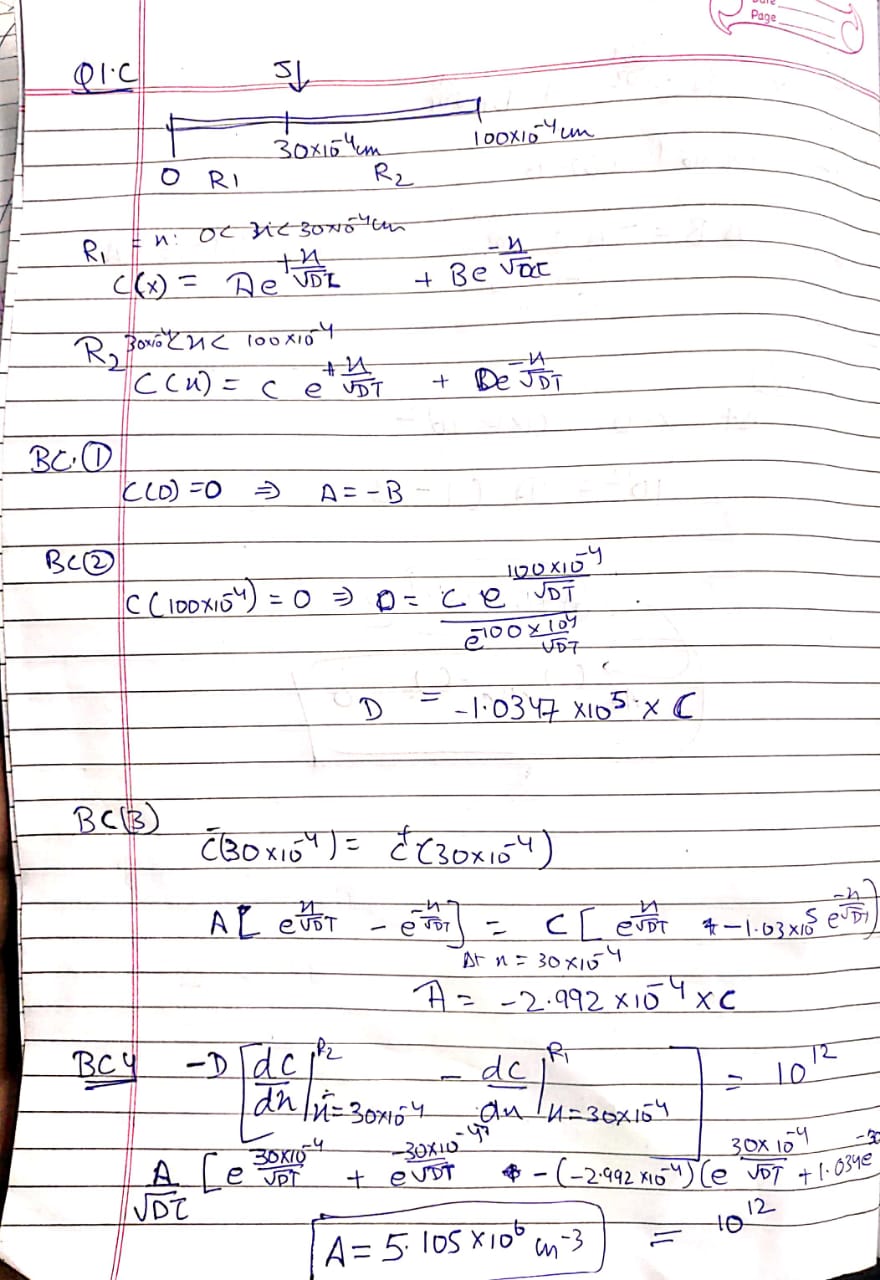 Page
Q1.C
J↓
30×10⁻⁴cm
100×10⁻⁴cm
O R1 R2
R₁ = x: 0< x < 30×10⁻⁴cm
C(x) = A e^(+x/√Dτ) + B e^(-x/√Dτ)
R₂ 30×10⁻⁴< x < 100×10⁻⁴
C(x) = C e^(+x/√Dτ) + D e^(-x/√Dτ)
BC.①
C(0) = 0 ⇒ A = -B
BC②
C(100×10⁻⁴) = 0 ⇒ 0 = C e^(100×10⁻⁴/√Dτ) / e^(-100×10⁻⁴/√Dτ)
D = -1.0347 ×10⁵ × C
BC(3)
C⁻(30×10⁻⁴) = C⁺(30×10⁻⁴)
A [ e^(x/√Dτ) - e^(-x/√Dτ) ] = C [ e^(x/√Dτ) -1.03×10⁵ e^(-x/√Dτ) ]
At x = 30×10⁻⁴
A = -2.992 ×10⁻⁴ × C
BC4 -D [ dc/dx |^R₂ x=30×10⁻⁴ - dc/dx |^R₁ x=30×10⁻⁴ ] = 10¹²
A/√Dτ [ e^(30×10⁻⁴/√Dτ) + e^(-30×10⁻⁴/√Dτ) - (-2.992×10⁻⁴) (e^(30×10⁻⁴/√Dτ) + 1.034e
A = 5.105 ×10⁶ cm⁻³ = 10¹²